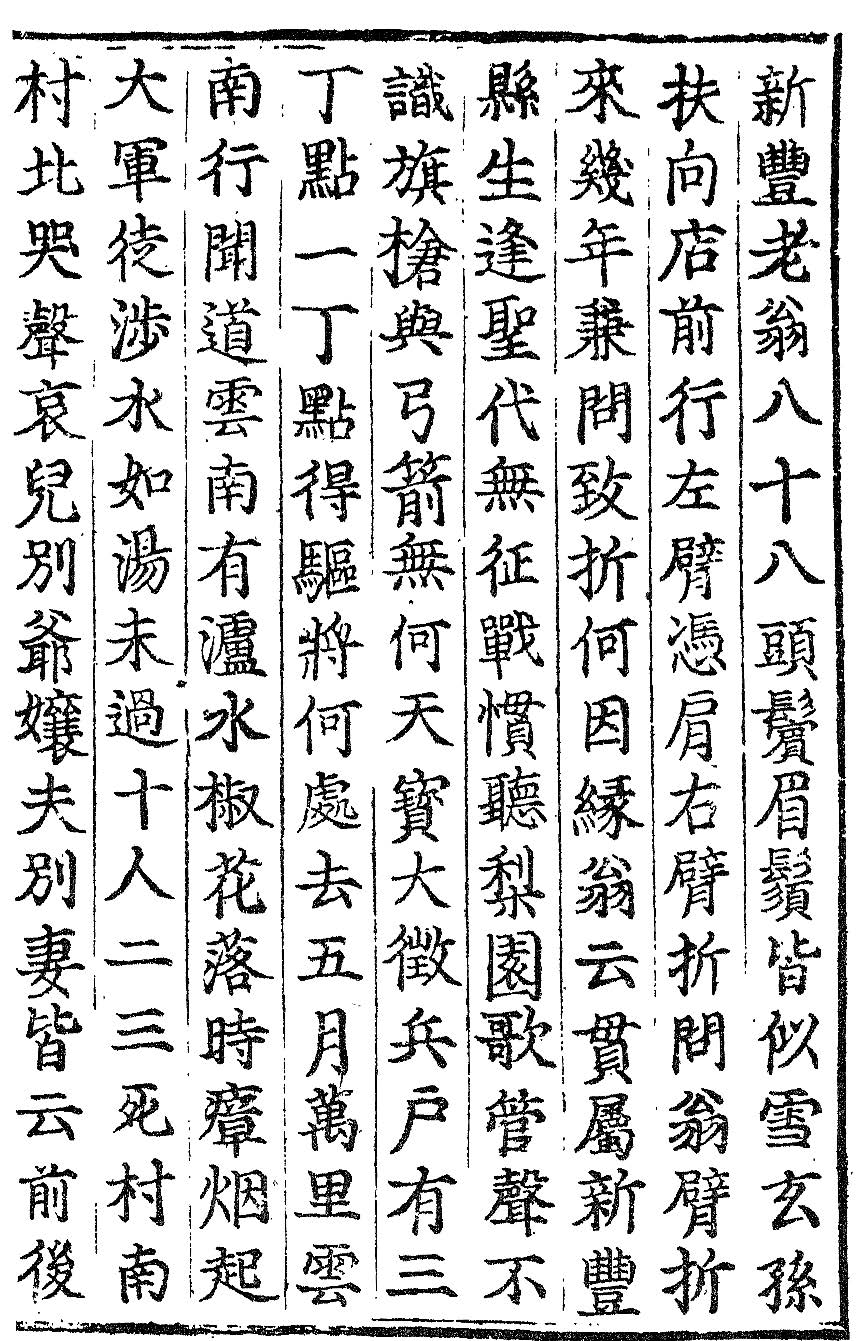 新豐老翁八十八頭鬢眉鬚皆似雪玄孫
扶向店前行左臂憑肩右臂折問翁臂折
來幾年兼問致折何因緣翁云貫屬新豐
縣生逢聖代無征戰慣聽梨園歌管聲不
識旗槍與弓箭無何天寶大徵兵戶有三
丁點一丁點得驅將何處去五月萬里雲
南行聞道雲南有瀘水椒花落時瘴烟起
大軍徒涉水如湯未過十人二三死村南
村北哭聲哀兒別爺孃夫別妻皆云前後